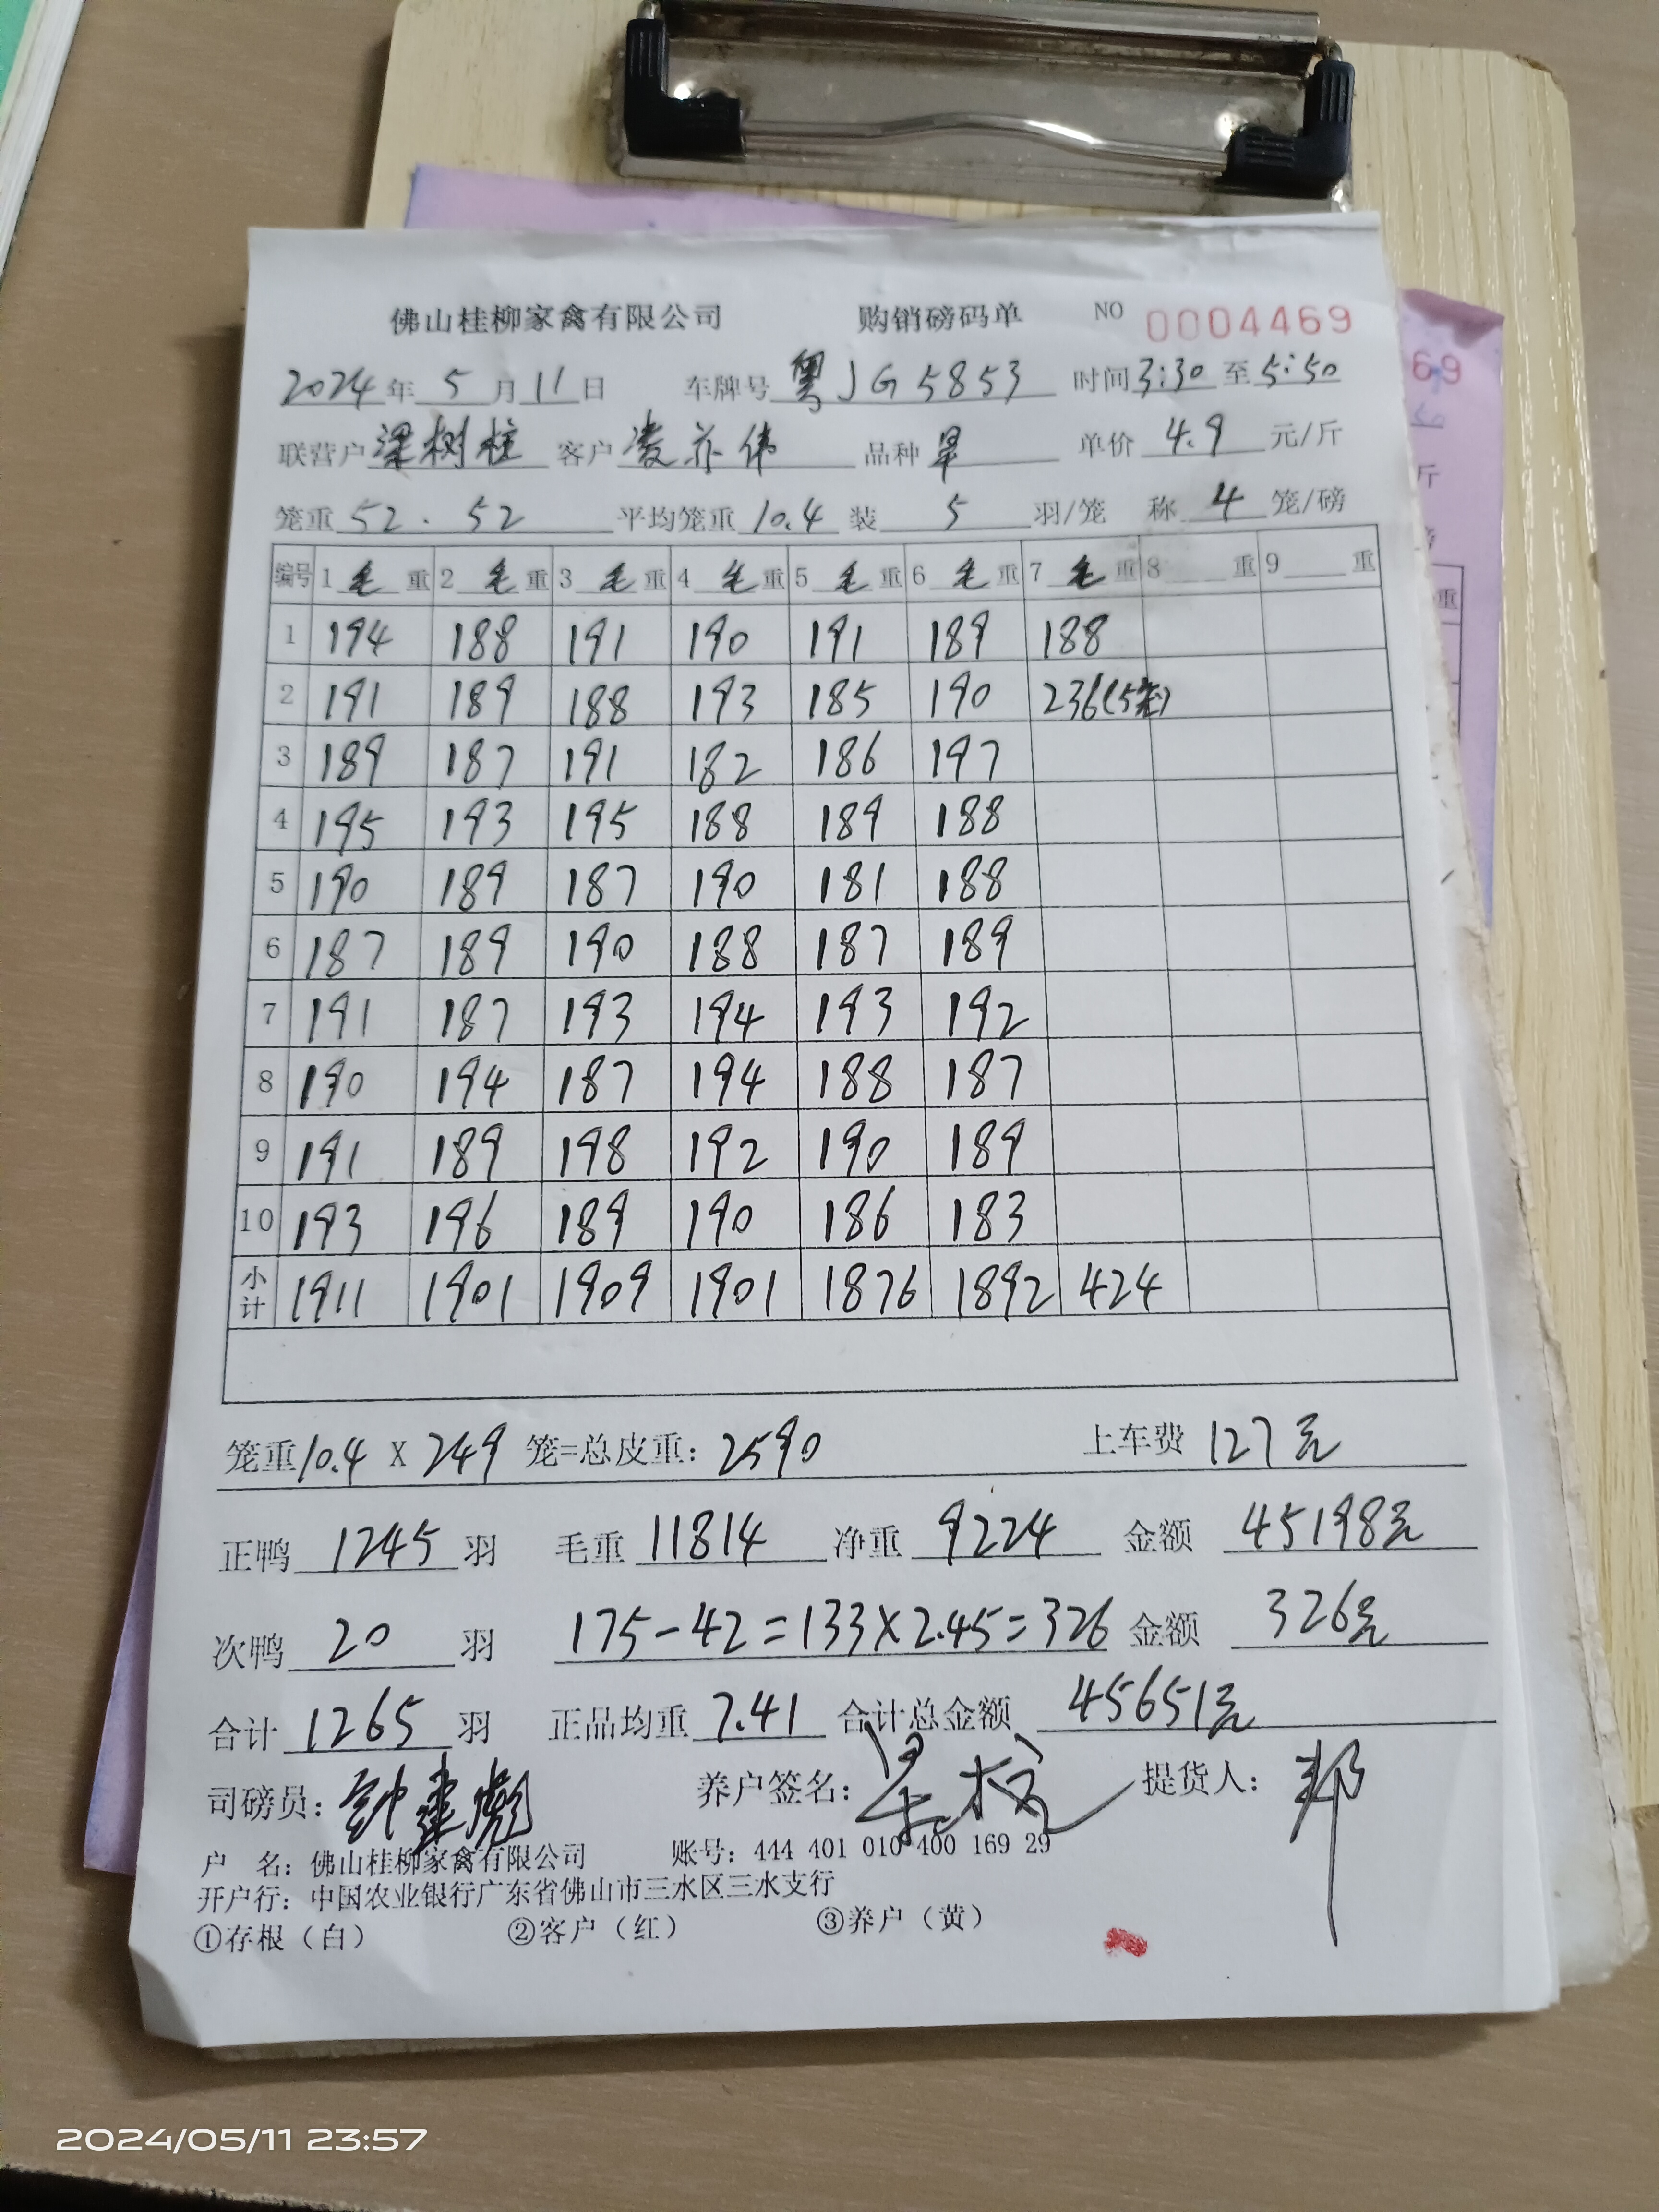 佛山桂柳家禽有限公司 购销磅码单 NO 0004469
2024年 5 月 11 日 车牌号 粤JG5853 时间 3:30 至 5:50
联营户 梁树柱 客户 凌亦伟 品种 旱 单价 4.9 元/斤
笼重 52 . 52 平均笼重 10.4 装 5 羽/笼 称 4 笼/磅
编号 1 毛 重 2 毛 重 3 毛 重 4 毛 重 5 毛 重 6 毛 重 7 毛 重 8 重 9 重
1 194 188 191 190 191 189 188
2 191 189 188 193 185 190 236(5笼)
3 189 187 191 182 186 197
4 195 193 195 188 189 188
5 190 189 187 190 181 188
6 187 189 190 188 187 189
7 191 187 193 194 193 192
8 190 194 187 194 188 187
9 191 189 198 192 190 189
10 193 196 189 190 186 183
小计 1911 1901 1909 1901 1876 1892 424
笼重 10.4 X 249 笼=总皮重: 2590 上车费 127元
正鸭 1245 羽 毛重 11814 净重 9224 金额 45198元
次鸭 20 羽 175-42=133×2.45=326 金额 326元
合计 1265 羽 正品均重 7.41 合计总金额 45651元
司磅员: 钟建彪 养户签名: 提货人: 邦
户 名: 佛山桂柳家禽有限公司 账号: 444 401 010 400 169 29
开户行: 中国农业银行广东省佛山市三水区三水支行
①存根（白） ②客户（红） ③养户（黄）
2024/05/11 23:57